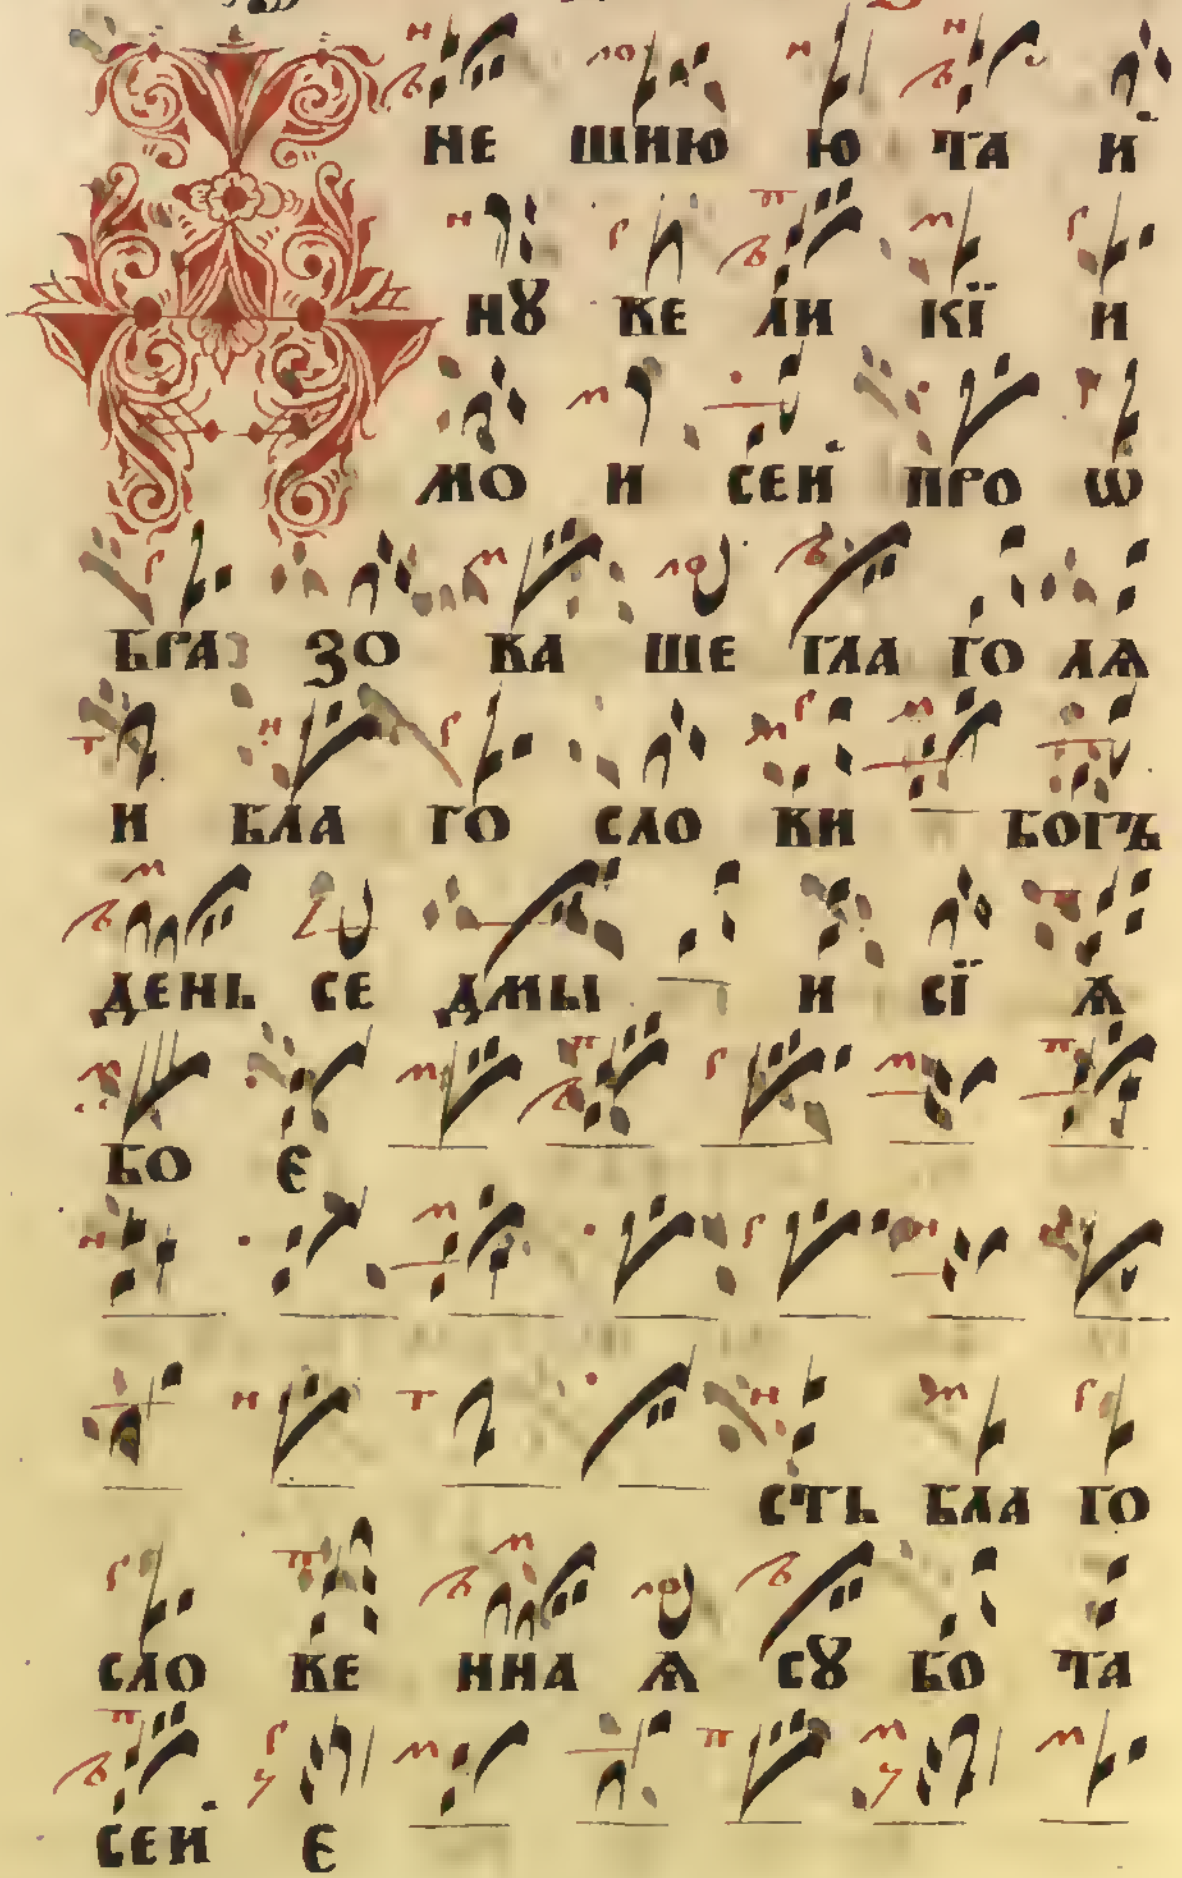 Д НЕ ШНЮ Ю ТА Й
НꙊ ВЕ ЛИ КЇ И
МО И СЕЙ ПРО Ѡ
БРА ЗО ВА ШЕ ГЛА ГО ЛѦ
И БЛА ГО СЛО ВИ БОГЪ
ДЕНЬ СЕ ДМЫ И СЇ Ѧ
БО Є
СТЬ БЛА ГО
СЛО ВЕ ННА Ѧ СꙊ БО ТА
СЕЙ Є